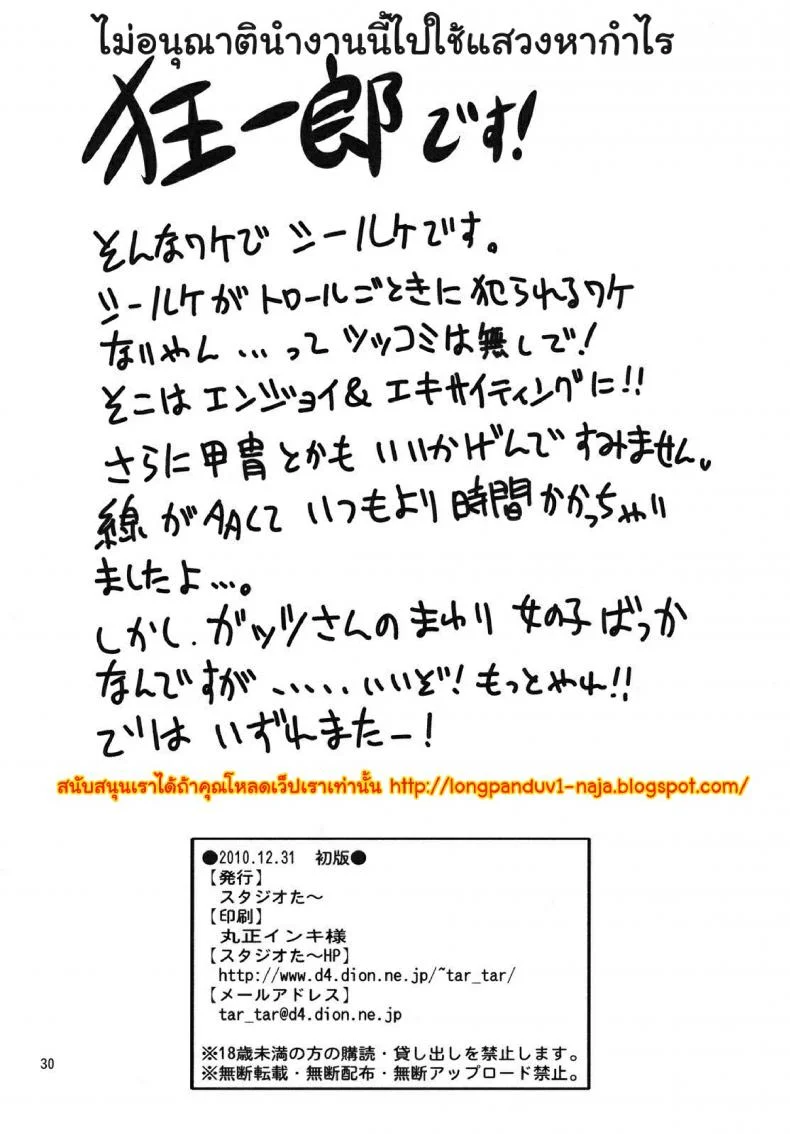 ไม่อนุณาตินำงานนี้ไปใช้แสวงหากำไร
狂一郎です!
そんなワケで シールケです。
シールケが トロールごときに 犯られるワケ
ないやん…って ツッコミは無しで!
そこは エンジョイ& エキサイティングに!!
さらに甲冑とかも いいかげんで すみません。
線が AAくて いつもより 時間 かかっちゃい
ましたよ…。
しかし、ガッツさんの まわり 女の子 ばっか
なんですが ..... いいぞ! もっとやれ!!
では いずれまたー!
สนับสนุนเราได้ถ้าคุณโหลดเว็ปเราเท่านั้น http://longpanduv1-naja.blogspot.com/
●2010.12.31 初版●
【発行】
スタジオた～
【印刷】
丸正インキ様
【スタジオた～HP】
http://www.d4.dion.ne.jp/~tar_tar/
【メールアドレス】
tar_tar@d4.dion.ne.jp
※18歳未満の方の購読・貸し出しを禁止します。
※無断転載・無断配布・無断アップロード禁止。
30